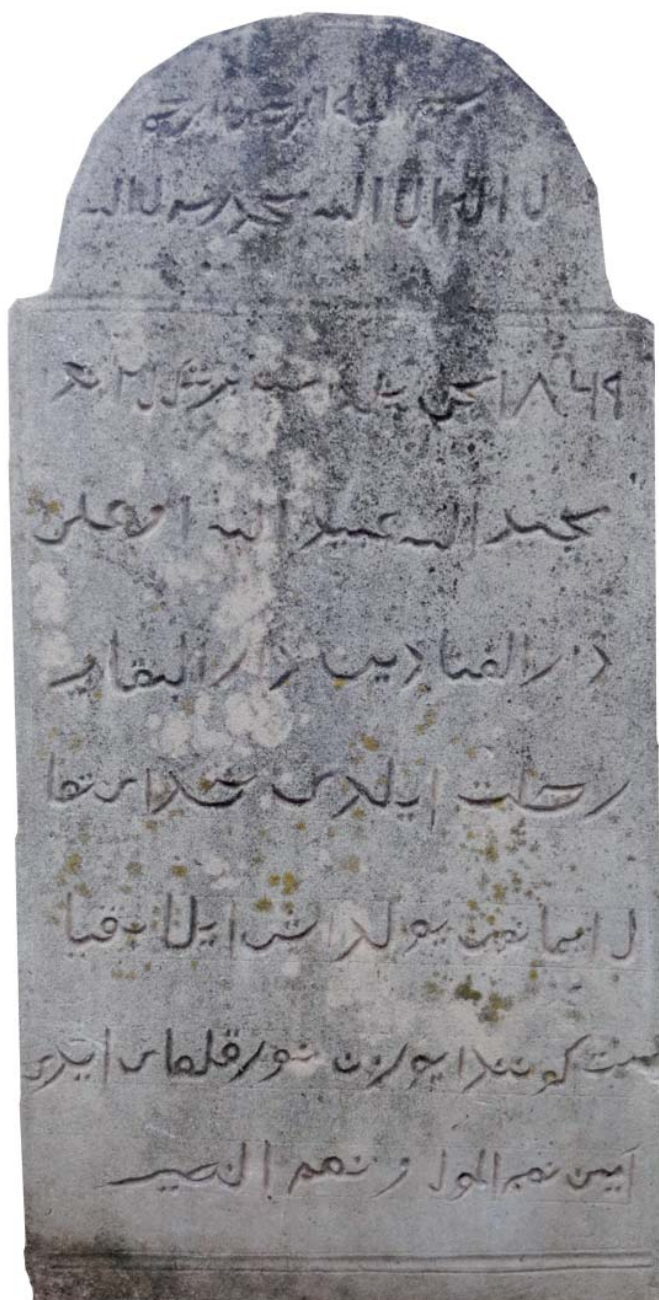 بسم الله الرحمن الرحيم
لا اله الا الله محمد رسول الله
١٨٦٩ نجى يلدا
عبيد الله اوغلى
دار الفنادين دار البقايه
رحلت ايلدى خدا يتعا
ل ايمانن يولداش ايلاب قيا
مت كونندا يوزن نورقلغاى ايدى
امين نعم المولا و نعم النصير